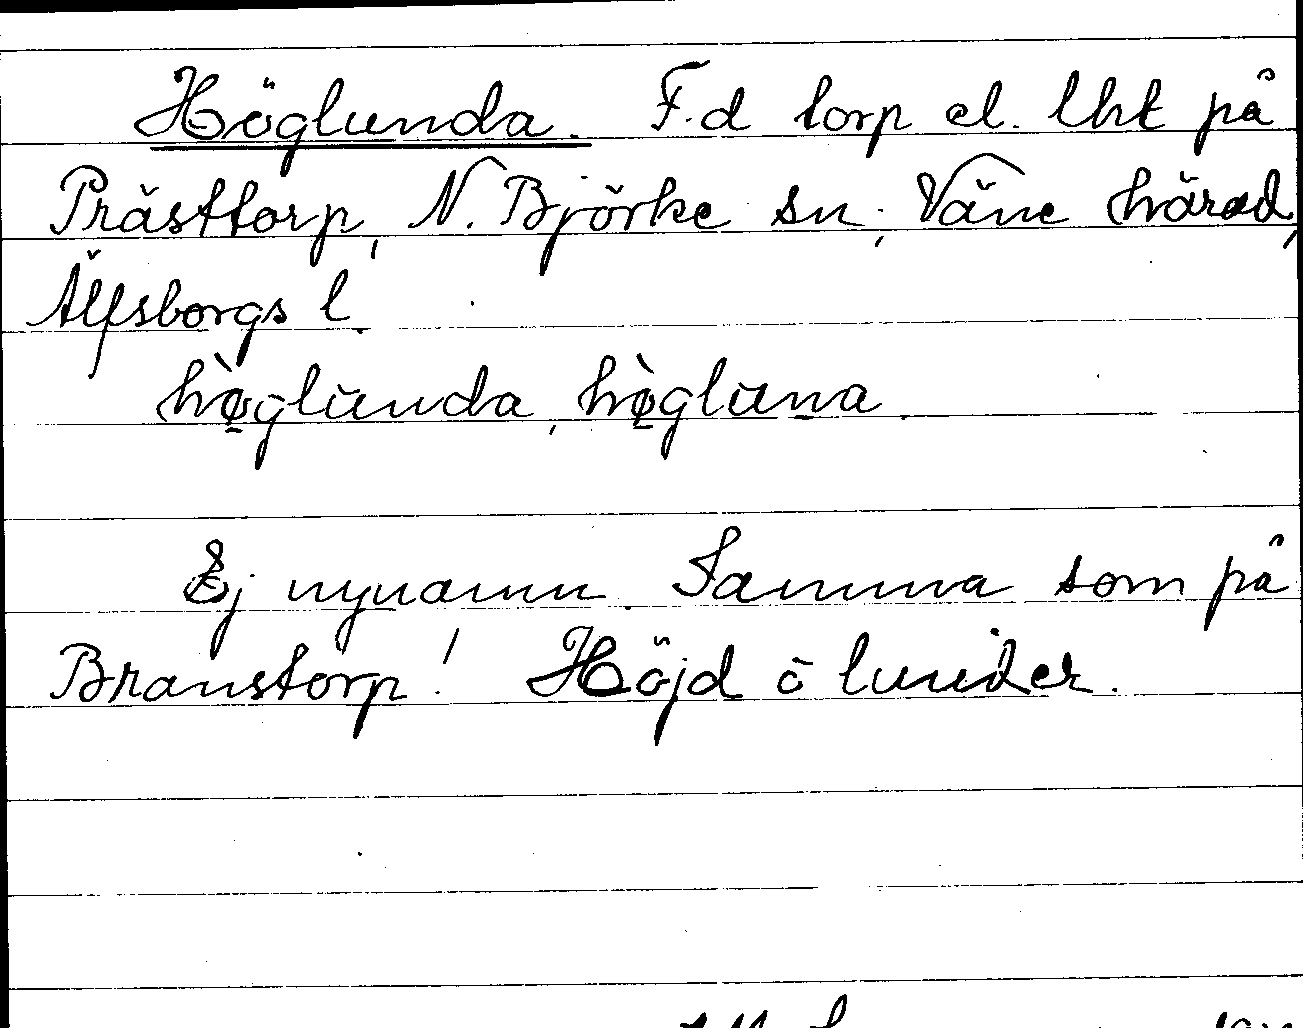 Höglunda. F.d torp el. lht på
Prästtorp, N. Björke sn, Väne härad,
Älfsborgs l.
hø̀glūnda, hø̀glūna.
Ej nynamn. Samma som på
Branstorp! Höjd ō lunder.